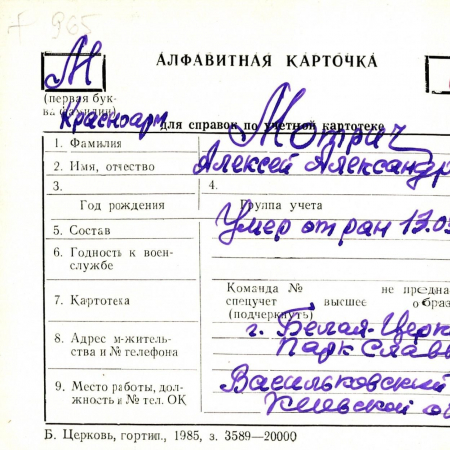 М
АЛФАВИТНАЯ КАРТОЧКА
(первая бук-
ва фамилии)
Красноарм
для справок по учетной картотеке
1. Фамилия Мотрич
2. Имя, отчество Алексей Александр
3. 4.
Год рождения Группа учета
5. Состав Умер от ран 13.0
6. Годность к воен-
службе
7. Картотека Команда № не предна
спецучет высшее образ
(подчеркнуть)
8. Адрес м-житель-
ства и № телефона г. Белая-Церк
Парк Славы
9. Место работы, дол-
жность и № тел. ОК Васильковский
Киевской о
Б. Церковь, гортип., 1985, з. 3589—20000